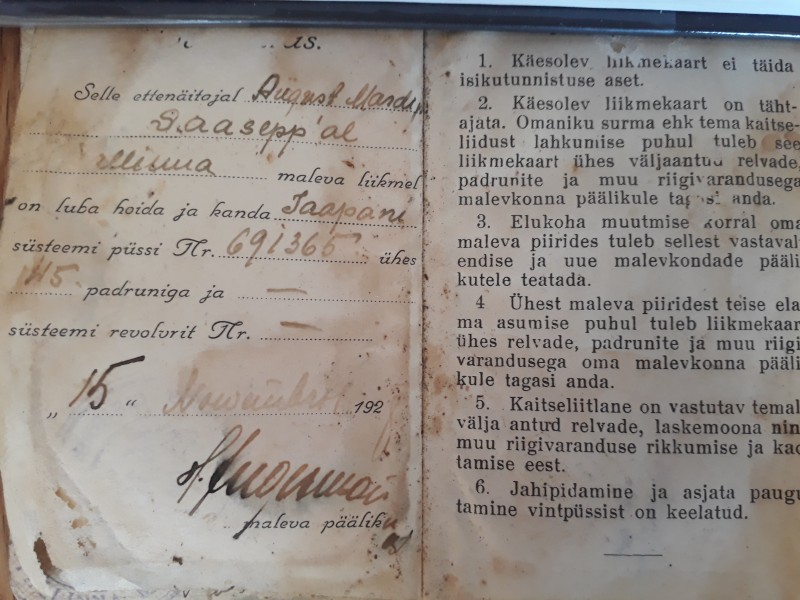 Selle ettenäitajal August Mardi p.
Saasepp'al
maleva liikmel
on luba hoida ja kanda Jaapani
süsteemi püssi Nr. 691365 ühes
145 padruniga ja —
süsteemi revolvrit Nr. —
„ 15 “ Novembril 192
maleva pääliku
1. Käesolev liikmekaart ei täida
isikutunnistuse aset.
2. Käesolev liikmekaart on täht-
ajata. Omaniku surma ehk tema kaitse-
liidust lahkumise puhul tuleb see
liikmekaart ühes väljaantuu relvade,
padrunite ja muu riigivarandusega
malevkonna päälikule tagasi anda.
3. Elukoha muutmise korral oma
maleva piirides tuleb sellest vastaval
endise ja uue malevkondade pääli
kutele teatada.
4 Ühest maleva piiridest teise ela
ma asumise puhul tuleb liikmekaar
ühes relvade, padrunite ja muu riigi
varandusega oma malevkonna pääli
kule tagasi anda.
5. Kaitseliitlane on vastutav temal
välja antud relvade, laskemoona nin
muu riigivaranduse rikkumise ja kao
tamise eest.
6. Jahipidamine ja asjata paugu
tamine vintpüssist on keelatud.